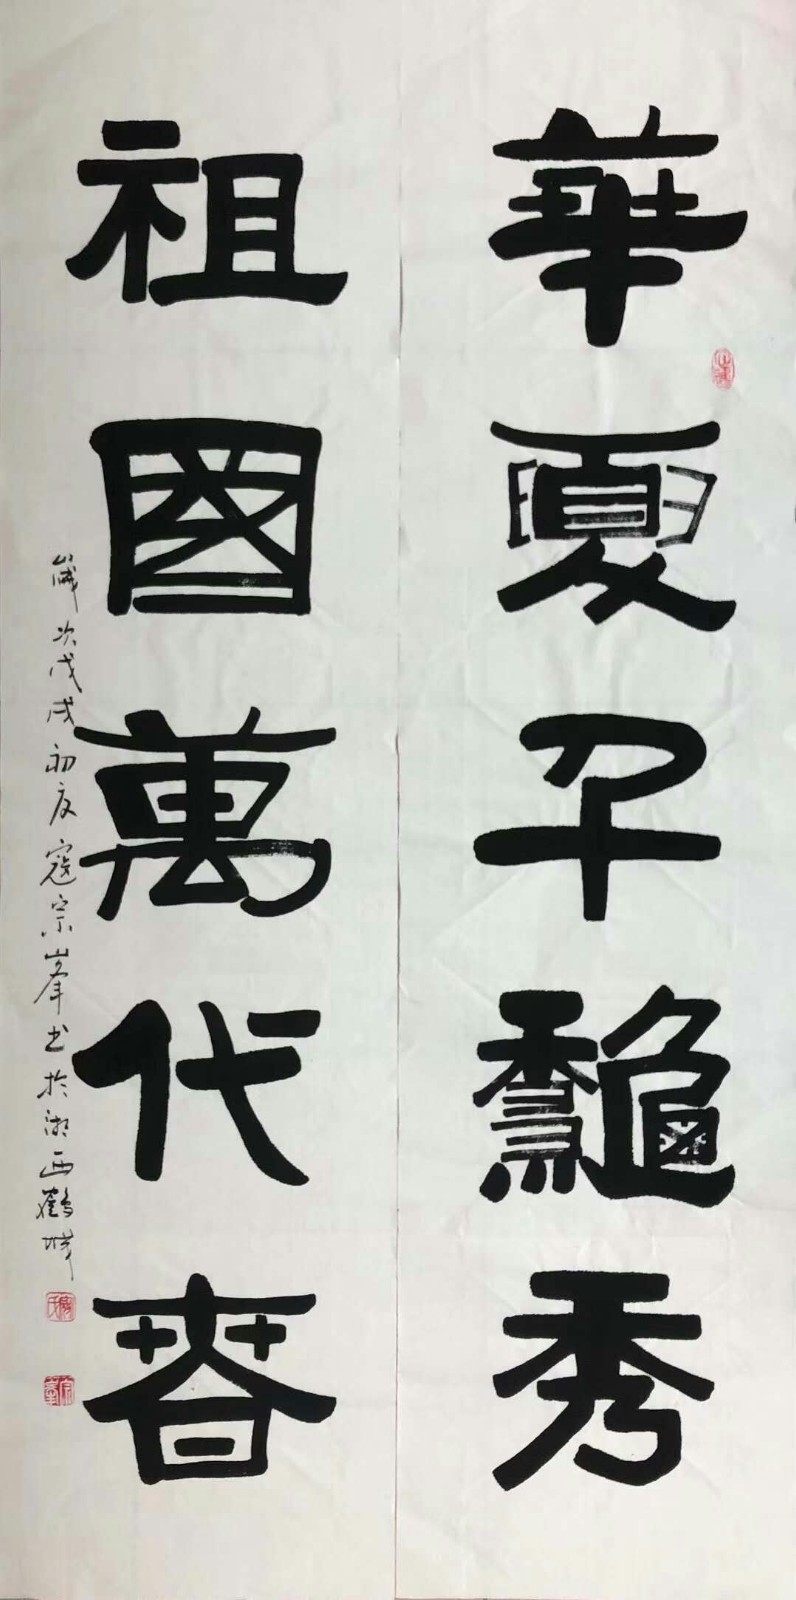 華夏千龝秀
祖國萬代春
歲次戊戌初夏寇宗峯书於湘西鶴城